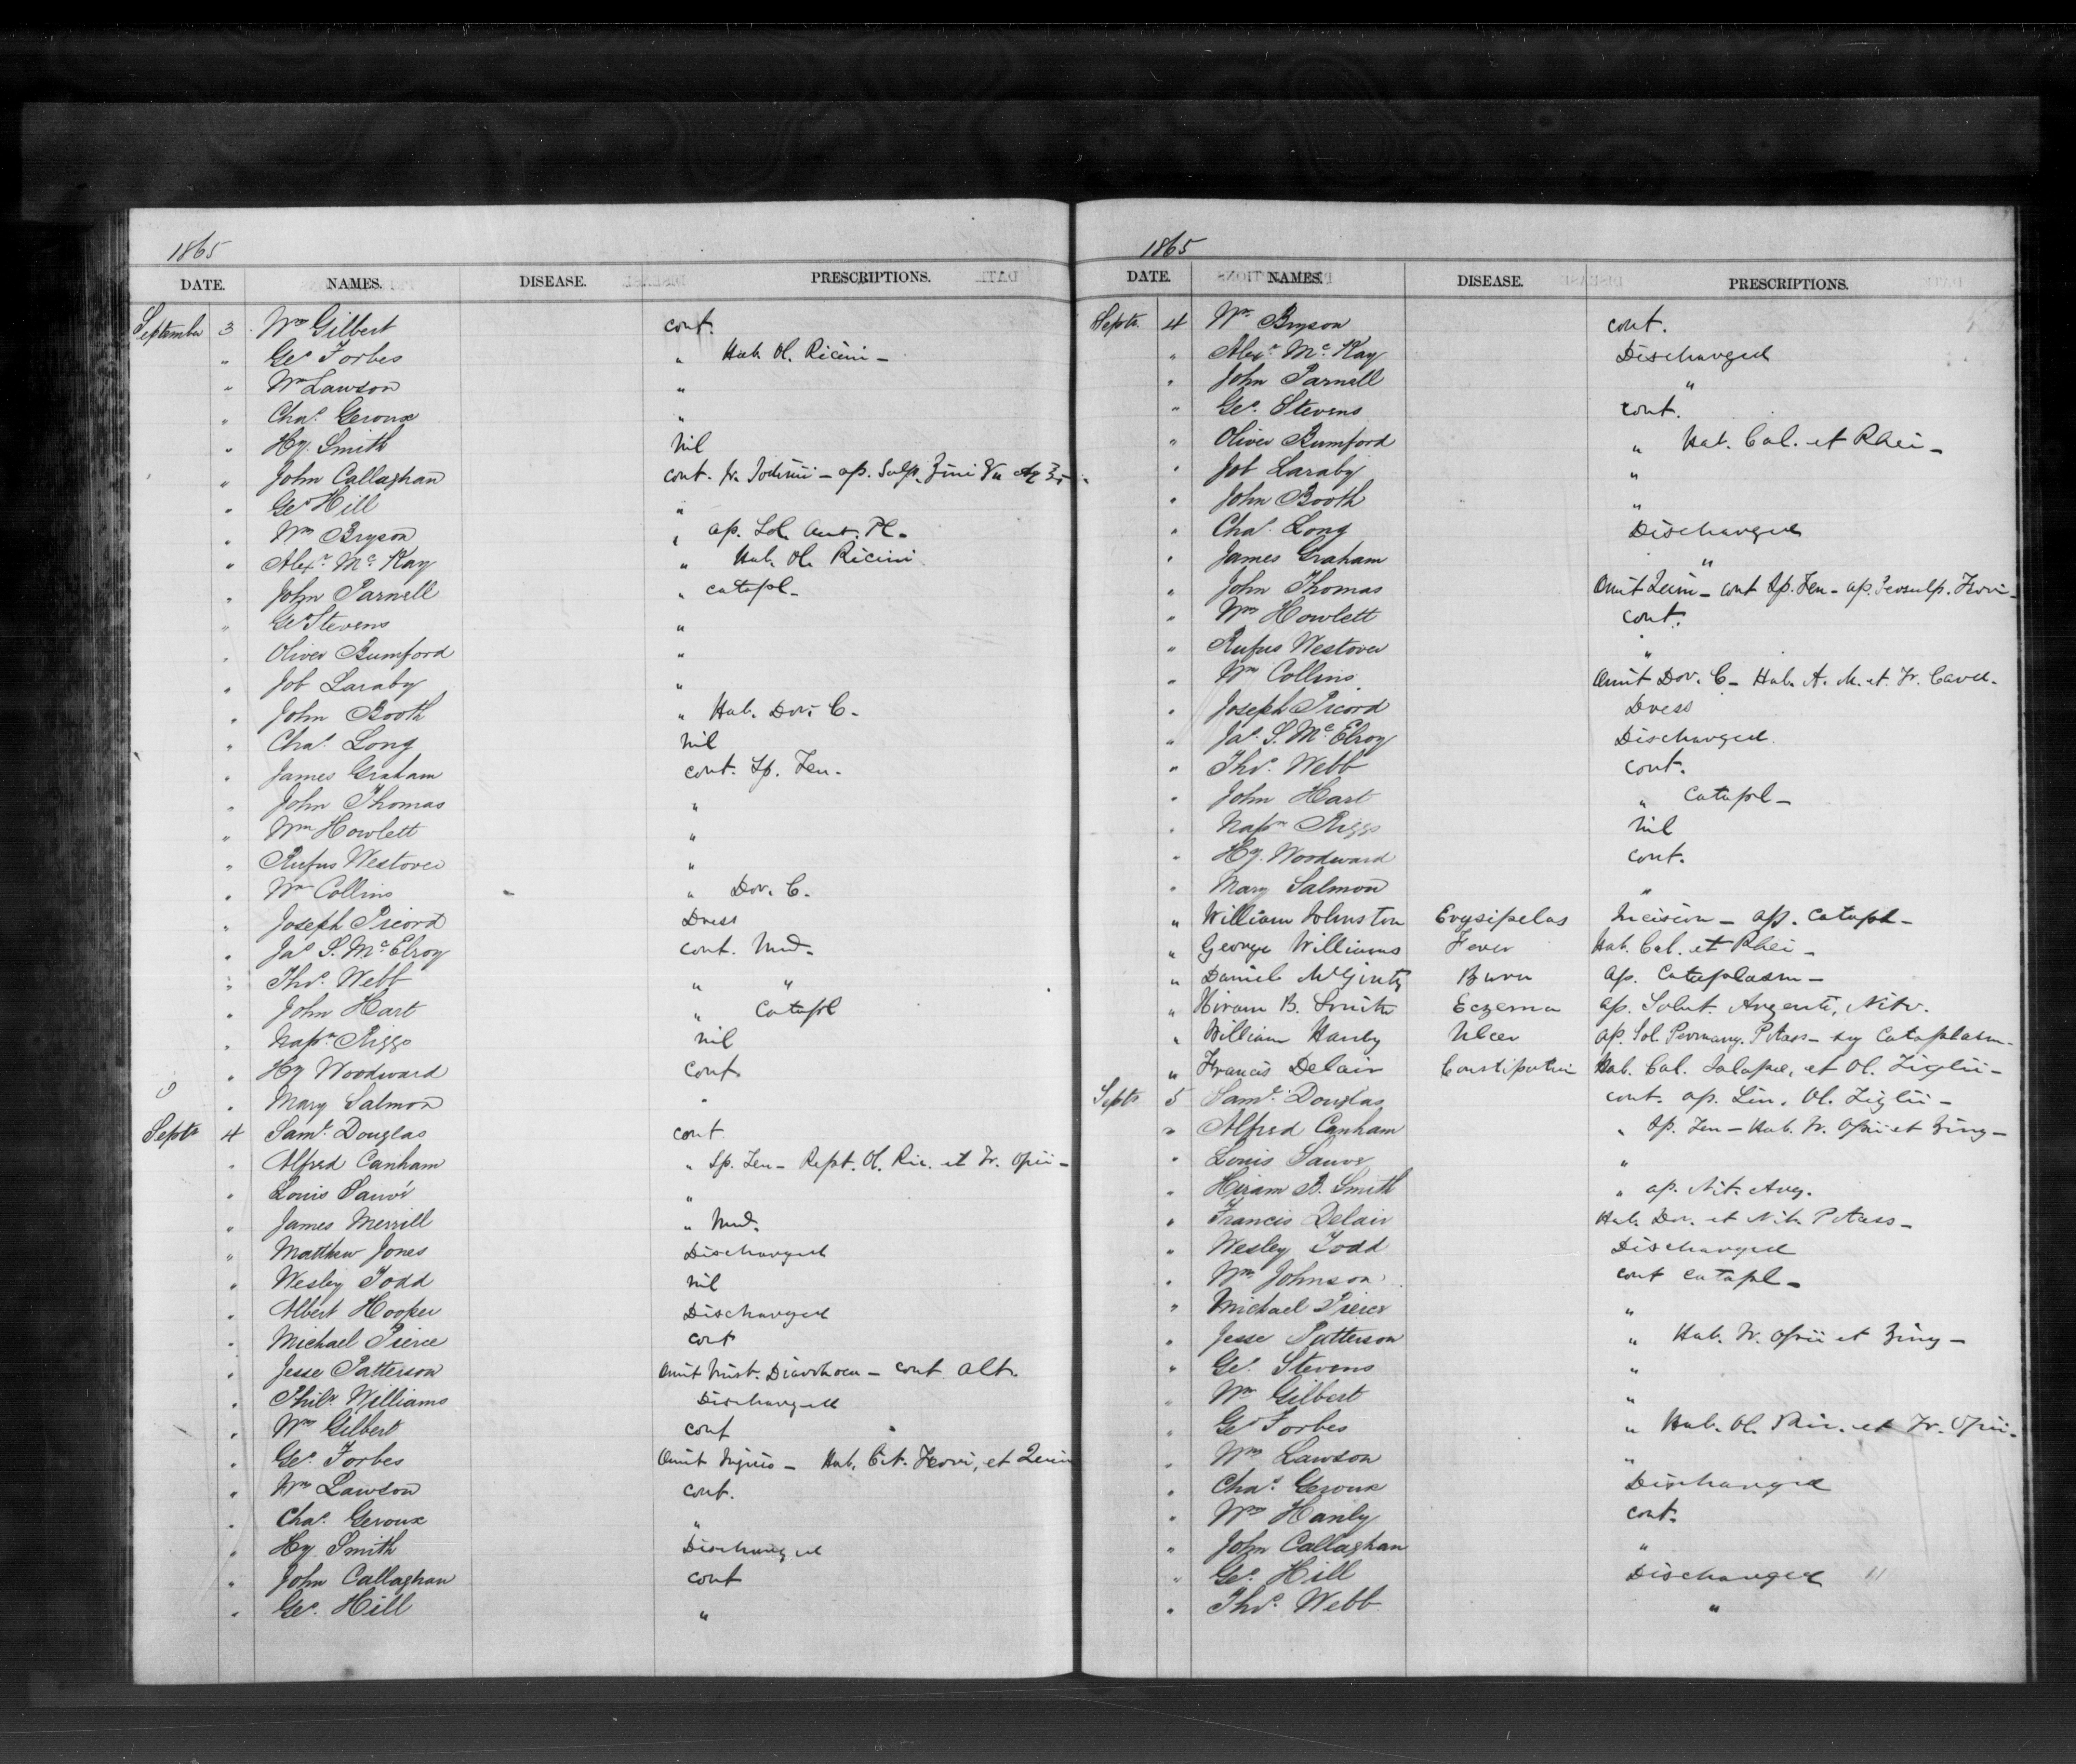 1865
DATE. NAMES. DISEASE. PRESCRIPTIONS.
September 3 Wm Gilbert cont.
" Geo Forbes " Hab. Ol. Ricini –
" Wm Lawson "
" Chas. Geroux "
" Hy. Smith Nil
" John Callaghan cont. Tr. Iodinii – ap. Sulp. Zinci
" Geo Hill "
" Wm Bryson " ap. Sol. Aut. Pl.
" Alexr Mc Kay " Hab. Ol. Ricini
" John Parnell " catapl –
" Geo Stevens "
" Oliver Bumford "
" Job Laraby "
" John Booth " Hab. Dov. C.
" Chas. Long Nil
" James Graham cont. Sp. Fen.
" John Thomas "
" Wm Howlett "
" Rufus Westover "
" Wm Collins " Dov. C.
" Joseph Picord Dress
" Jas S. Mc Elroy cont. Med.
" Thos. Webb " "
" John Hart " Catapl
" Napn Riggs Nil
" Hy Woodward cont.
" Mary Salmon "
Septr 4 Saml. Douglas cont
" Alfred Canham " Sp. Fen – Rept. Ol. Ric. et Tr. Opii –
" Louis Sauvé "
" James Merrill " Med.
" Matthew Jones Discharged
" Wesley Todd Nil
" Albert Hooper Discharged
" Michael Pierce cont
" Jesse Patterson Omit Mist. Diarrhoea – cont. alt.
" Philr Williams Discharged
" Wm Gilbert cont
" Geo. Forbes Omit Injecs – Hab. Cit. Ferri, et Quin
" Wm Lawson cont.
" Chas. Geroux "
" Hy Smith Discharged
" John Callaghan cont
" Geo. Hill "
1865
DATE. NAMES. DISEASE. PRESCRIPTIONS.
Septr. 4 Wm Bryson cont.
" Alexr. Mc. Kay Discharged
" John Parnell "
" Geo. Stevens cont.
" Oliver Bumford " Hab. Cal. et Rhei –
" Job Laraby "
" John Booth "
" Chas. Long Discharged
" James Graham "
" John Thomas Omit Quin – cont Sp. Fen – ap. Persulp. Ferri –
" Wm Howlett cont.
" Rufus Westover "
" Wm Collins Omit Dov. C – Hab. A. M. et. Tr. Card.
" Joseph Picord Dress
" Jas. S. Mc Elroy Discharged.
" Thos. Webb cont.
" John Hart " Catapl –
" Napn Riggs Nil
" Hy. Woodward cont.
" Mary Salmon "
" William Johnston Erysipelas Incision – ap. catapl –
" George Williams Fever Hab. Cal. et Rhei –
" Daniel McGinty Burn ap. Cataplasm –
" Hiram B. Smith Eczema ap. Solut. Argenti, Nitr.
" William Hanby Ulcer ap. Sol. Permang. Potass – Cataplasm –
" Francis Delair Constipation Hab. Cal. Jalapae, et Ol. Tiglii –
Septr 5 Saml. Douglas cont. ap. Lin. Ol. Tiglii –
" Alfred Canham " Sp. Fen – Hab. Tr. Opii et Zing –
" Louis Sauve "
" Hiram B. Smith " ap. Nit. Arg.
" Francis Delair Hab. Dov. et Nit. Potass –
" Wesley Todd Discharged
" Wm Johnson cont catapl –
" Michael Pierce "
" Jesse Patterson " Hab. Tr. Opii et Zing –
" Geo. Stevens "
" Wm Gilbert "
" Geo Forbes " Hab. Ol. Ric. et Tr. Opii.
" Wm Lawson "
" Chas. Geroux Discharged
" Wm Hanly cont.
" John Callaghan "
" Geo. Hill Discharged "
" Thos. Webb "